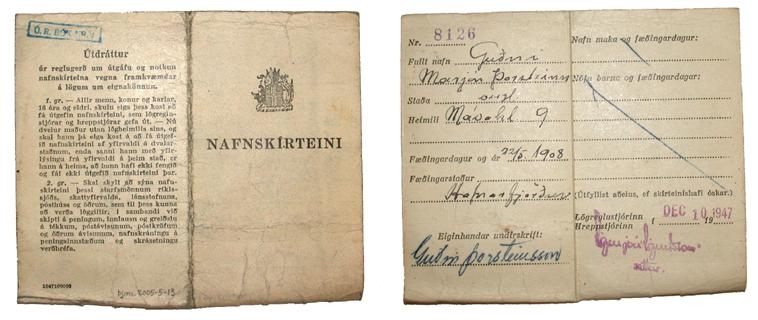 Útdráttur
úr reglugerð um útgáfu og notkun
nafnskírteina vegna framkvæmdar
á lögum um eignakönnun.
1. gr. — Allir menn, konur og karlar,
16 ára og eldri, skulu eiga þess kost að
fá útgefin nafnskírteini, sem lögreglu-
stjórar og hreppstjórar gefa út. — Nú
dvelur maður utan lögheimilis síns, og
skal hann þá eiga kost á að fá útgef-
ið nafnskírteini af yfirvaldi á dvalar-
staðnum, enda sanni hann með yfir-
lýsingu frá yfirvaldi á þeim stað, er
hann á heima, að hann hafi ekki fengið
og fái ekki útgefið nafnskírteini þar.
2. gr. — Skal skylt að sýna nafn-
skírteini þessi starfsmönnum ríkis-
sjóðs, skattyfirvalds, lánsstofnana,
pósthúss og öðrum, sem til þess kunna
að verða löggiltir, í sambandi við
skipti á peningum, innlausn og greiðslu
á tékkum, póstávísunum, póstkröfum
og öðrum ávísunum, nafnskráningu á
peningainnstæðum og skrásetningu
verðbréfa.
1047100000
Þjms. 2005-5-13
NAFNSKÍRTEINI
Nr. 8126
Fullt nafn Guðni
Þorsteinn
Staða
Heimili Mávahl 9
Fæðingardagur og ár 22/5 1908
Fæðingarstaður
Hafnarfjörður
Eiginhandar undirskrift:
Guðni Þorsteinsson
Nafn maka og fæðingardagur:
Nöfn barna og fæðingardagar:
(Útfyllist aðeins, ef skírteinishafi óskar.)
Lögreglustjórinn
Hreppstjórinn
í DEC 10 1947 19